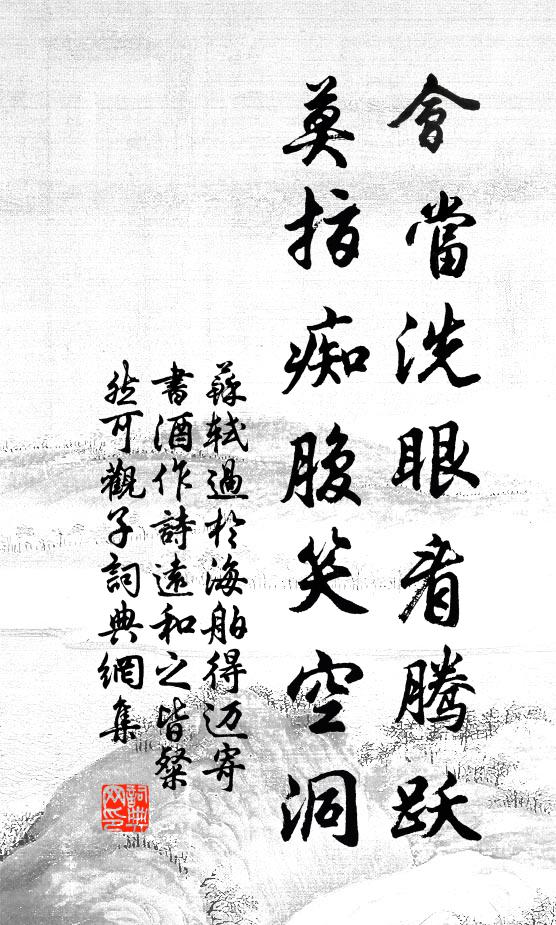 會當洗眼看騰躍
莫指痴腹笑空洞
蘇軾過於海舶得邁寄
書酒作詩遠和之皆粲
然可觀子詞典網集